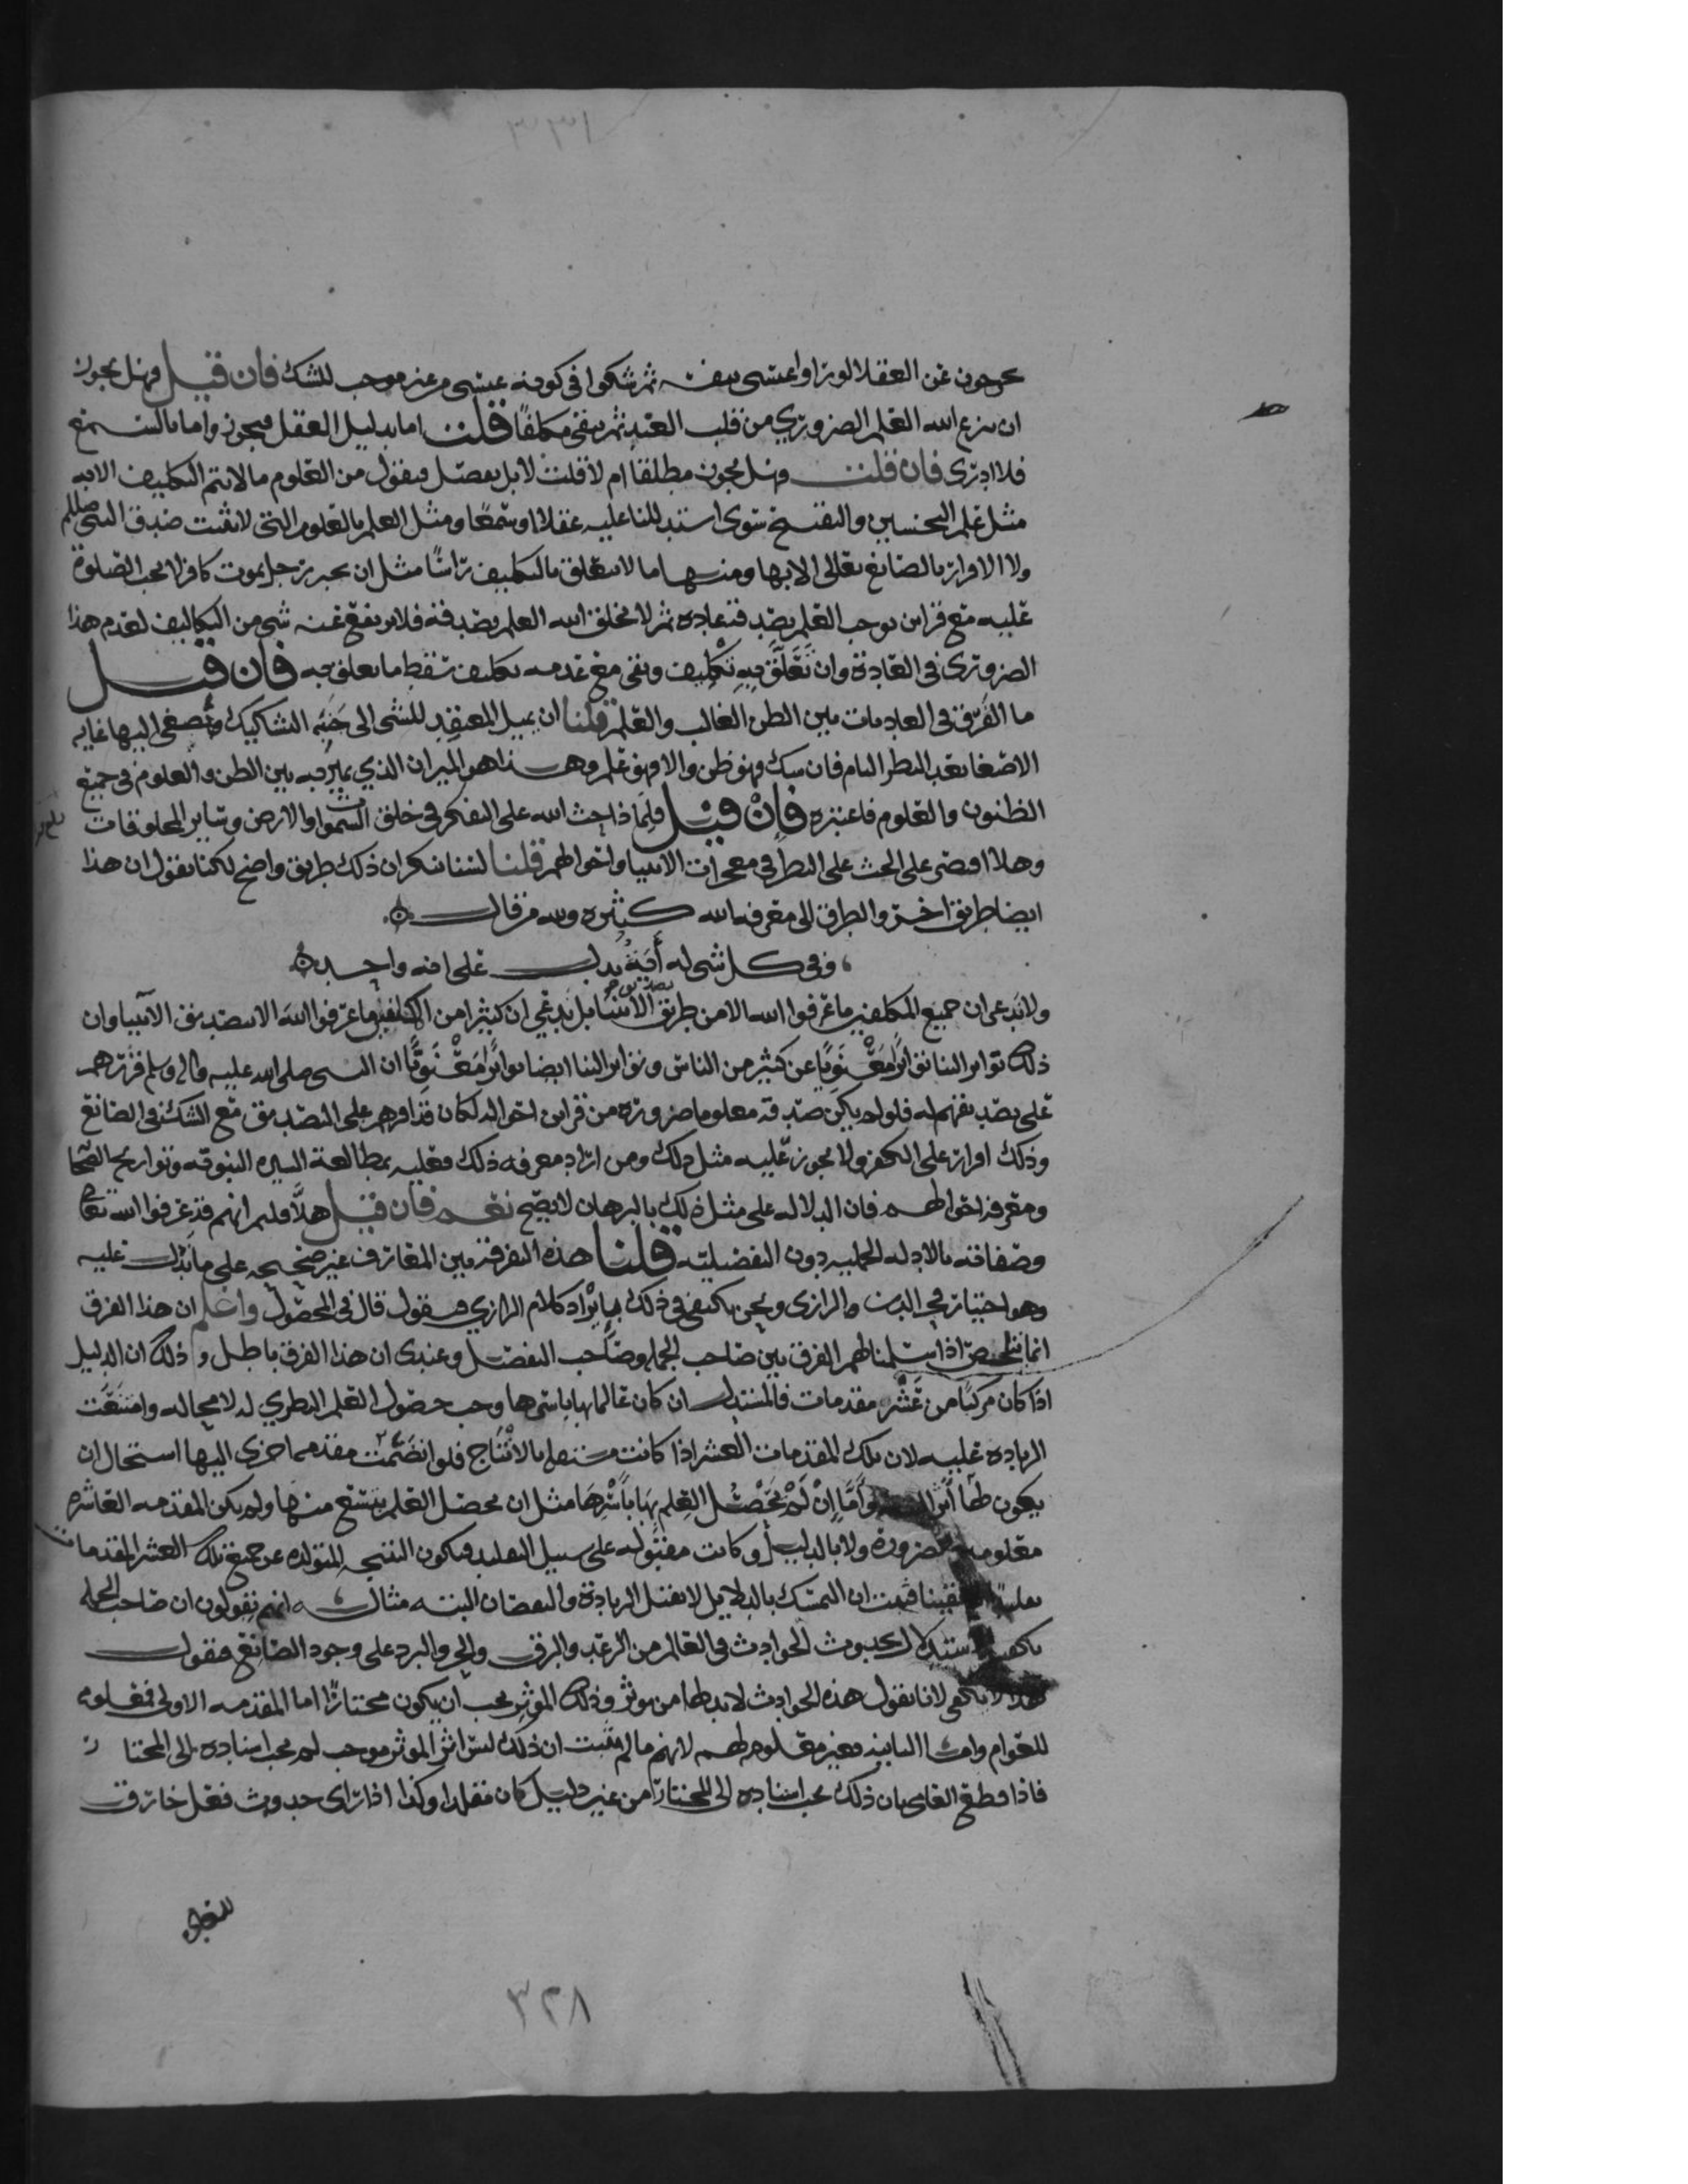 ٣٣١
يخرجون عن العقلا لو راوا عيسى بيقين ثم شكوا في كونه عيسى من غير موجب للشك فان قيل فهل يجوز
ان ينزع الله العلم الضروري من قلب العبد ثم يبقى مكلفًا قلت اما بدليل العقل فيجوز واما بالسمع
فلا ادري فان قلت فهل يجوز مطلقا ام لا قلت لا بل يفصل فيقول من العلوم ما لا يتم التكليف الا به
مثل علم التحسين والتقبيح سوى استدللنا عليه عقلا او سمعًا ومثل العلم بالعلوم التي لا يثبت صدق النبي صللم
ولا الاقرار بالصانع تعالى الا بها ومنها ما لا يتعلق بالتكليف راسًا مثل ان يخبر رجل بموت كافر لا تجب الصلوة
عليه مع قراين توجب العلم بصدقه عادة ثم لا يخلق الله العلم بصدقه فلا يرتفع عنه شي من التكاليف لعدم هذا
الضروري في العادة وان تَعَلَّق فيهِ تكْلِيف وبقى مع عدمه تكليف سقط ما تعلق به فان قيل
ما الفَرق في العاديات بين الظن الغالب والعلم قلنا ان يميل المعتقِد للشى الى جَنَبَه التشاكيك ويُصغى اليها غايه
الاصغا بعد النظر التام فان شك فهو ظن والا فهو علم وهذا هو الميزان الذي يميز به بين الظن والعلوم في جميع
الظنون والعلوم فاعتبره فإنْ قيْل فلِمَاذا حث الله على التفكر في خلق السموات والارض وساير المخلوقات
وهلا اقتصر على الحث على النظر في معجزات الانبيا واحوالهم قلنا لسنا ننكر ان ذلك طريق واضح لكنا نقول ان هذا
ايضا طريق اخر والطرق الى معرفه الله كثيره ولله من قال
وفي كل شى له أيَةٌ تدل على انه واحد
ولا ندعى ان جميع المكلفين ما عرفوا الله الا من طريق تصديق الانبيا بل ندعي ان كثيرا من المكلفين ما عرفوا الله الا بتصديق الانبيا وان
ذلك تواتر الينا تواترًا مَعْنَويًا عن كثير من الناس وتواتر الينا ايضا تواترًا مَعْنَويًّا ان النبى صلى الله عليه واله وسلم قررهم
على تصديقهم له فلو لم يكن صدقه معلوما ضرورة من قراين احواله لكان قد اقرهم على التصديق مع الشك في الصانع
وذلك اقرار على الكفر ولا يجوز عليه مثل ذلك ومن اراد معرفه ذلك فعليه بمطالعة السيره النبوية وتواريخ الصحا
ومعرفه احوالهم فان الدلاله على مثل ذلك بالبرهان لا يصح نعم فان قيل هلَّا قلتم انهم قد عرفوا الله تعالى
وصفاته بالادله الجمليه دون التفصيليه قلنا هذه التفرقة بين المعارف غير صحيحه على ما يَدل عليه
وهو اختيار فخر الدين الرازى ونحن نكتفى في ذلك بايْراد كلام الرازي فنقول قال في المحصول واعلم ان هذا الفرق
انما يتلخص اذا سلمنا لهم الفرق بين صاحب الجمل وصَاحب التفصيل وعندى ان هذا الفرق باطل وذلك ان الدليل
اذا كان مركبًا من عَشْر مقدمات فالمستدل ان كان عالما بها باسرها وجب حصول العلم النظري له لا محاله وامتنَعَت
الزياده عليه لان تلك المقدمات العشر اذا كانت مستقله بالانْتَاج فلو انضَمت مقدمه اخرى اليها استحال ان
يكون لها أثر البته وأَمَّا إنْ لَمْ يَحْصُل العِلم بهَا باَسْرِهَا مثل ان يحصل العلم بتسع منها ولم يكن المقدمه العاشره
معلومه بالضروره ولا بالدليل أو كانت مقبوله على سبيل التقليد فيكون النتيجه المتولده عن جميع تلك العشر المقدمات
تقليدا لا يقينا فثبت ان التمسك بالدلايل لا يقبل الزيادة والنقصان البته مثاله انهم يقولون ان صاحب الجمله
يكفيه الاستدلال بحدوث الحوادث في العالم من الرعد والبرق والحر والبرد على وجود الصانع فنقول
هذا لا يكفى لانا نقول هذه الحوادث لا بد لها من موثر وذلك الموثر يجب ان يكون مختارًا اما المقدمه الاولى فمعلومه
للعوام وامّا الثانيه فغير معلومه لهم لانهم ما لم يثبت ان ذلك ليس اثر الموثر موجب لم يجب اسناده الى المختار
فاذا قطع العامى بان ذلك يجب اسناده الى المختار من غير دليل كان مقلدا وكذا اذا راى حدوث فعل خارق
للعادة
٣٢٨